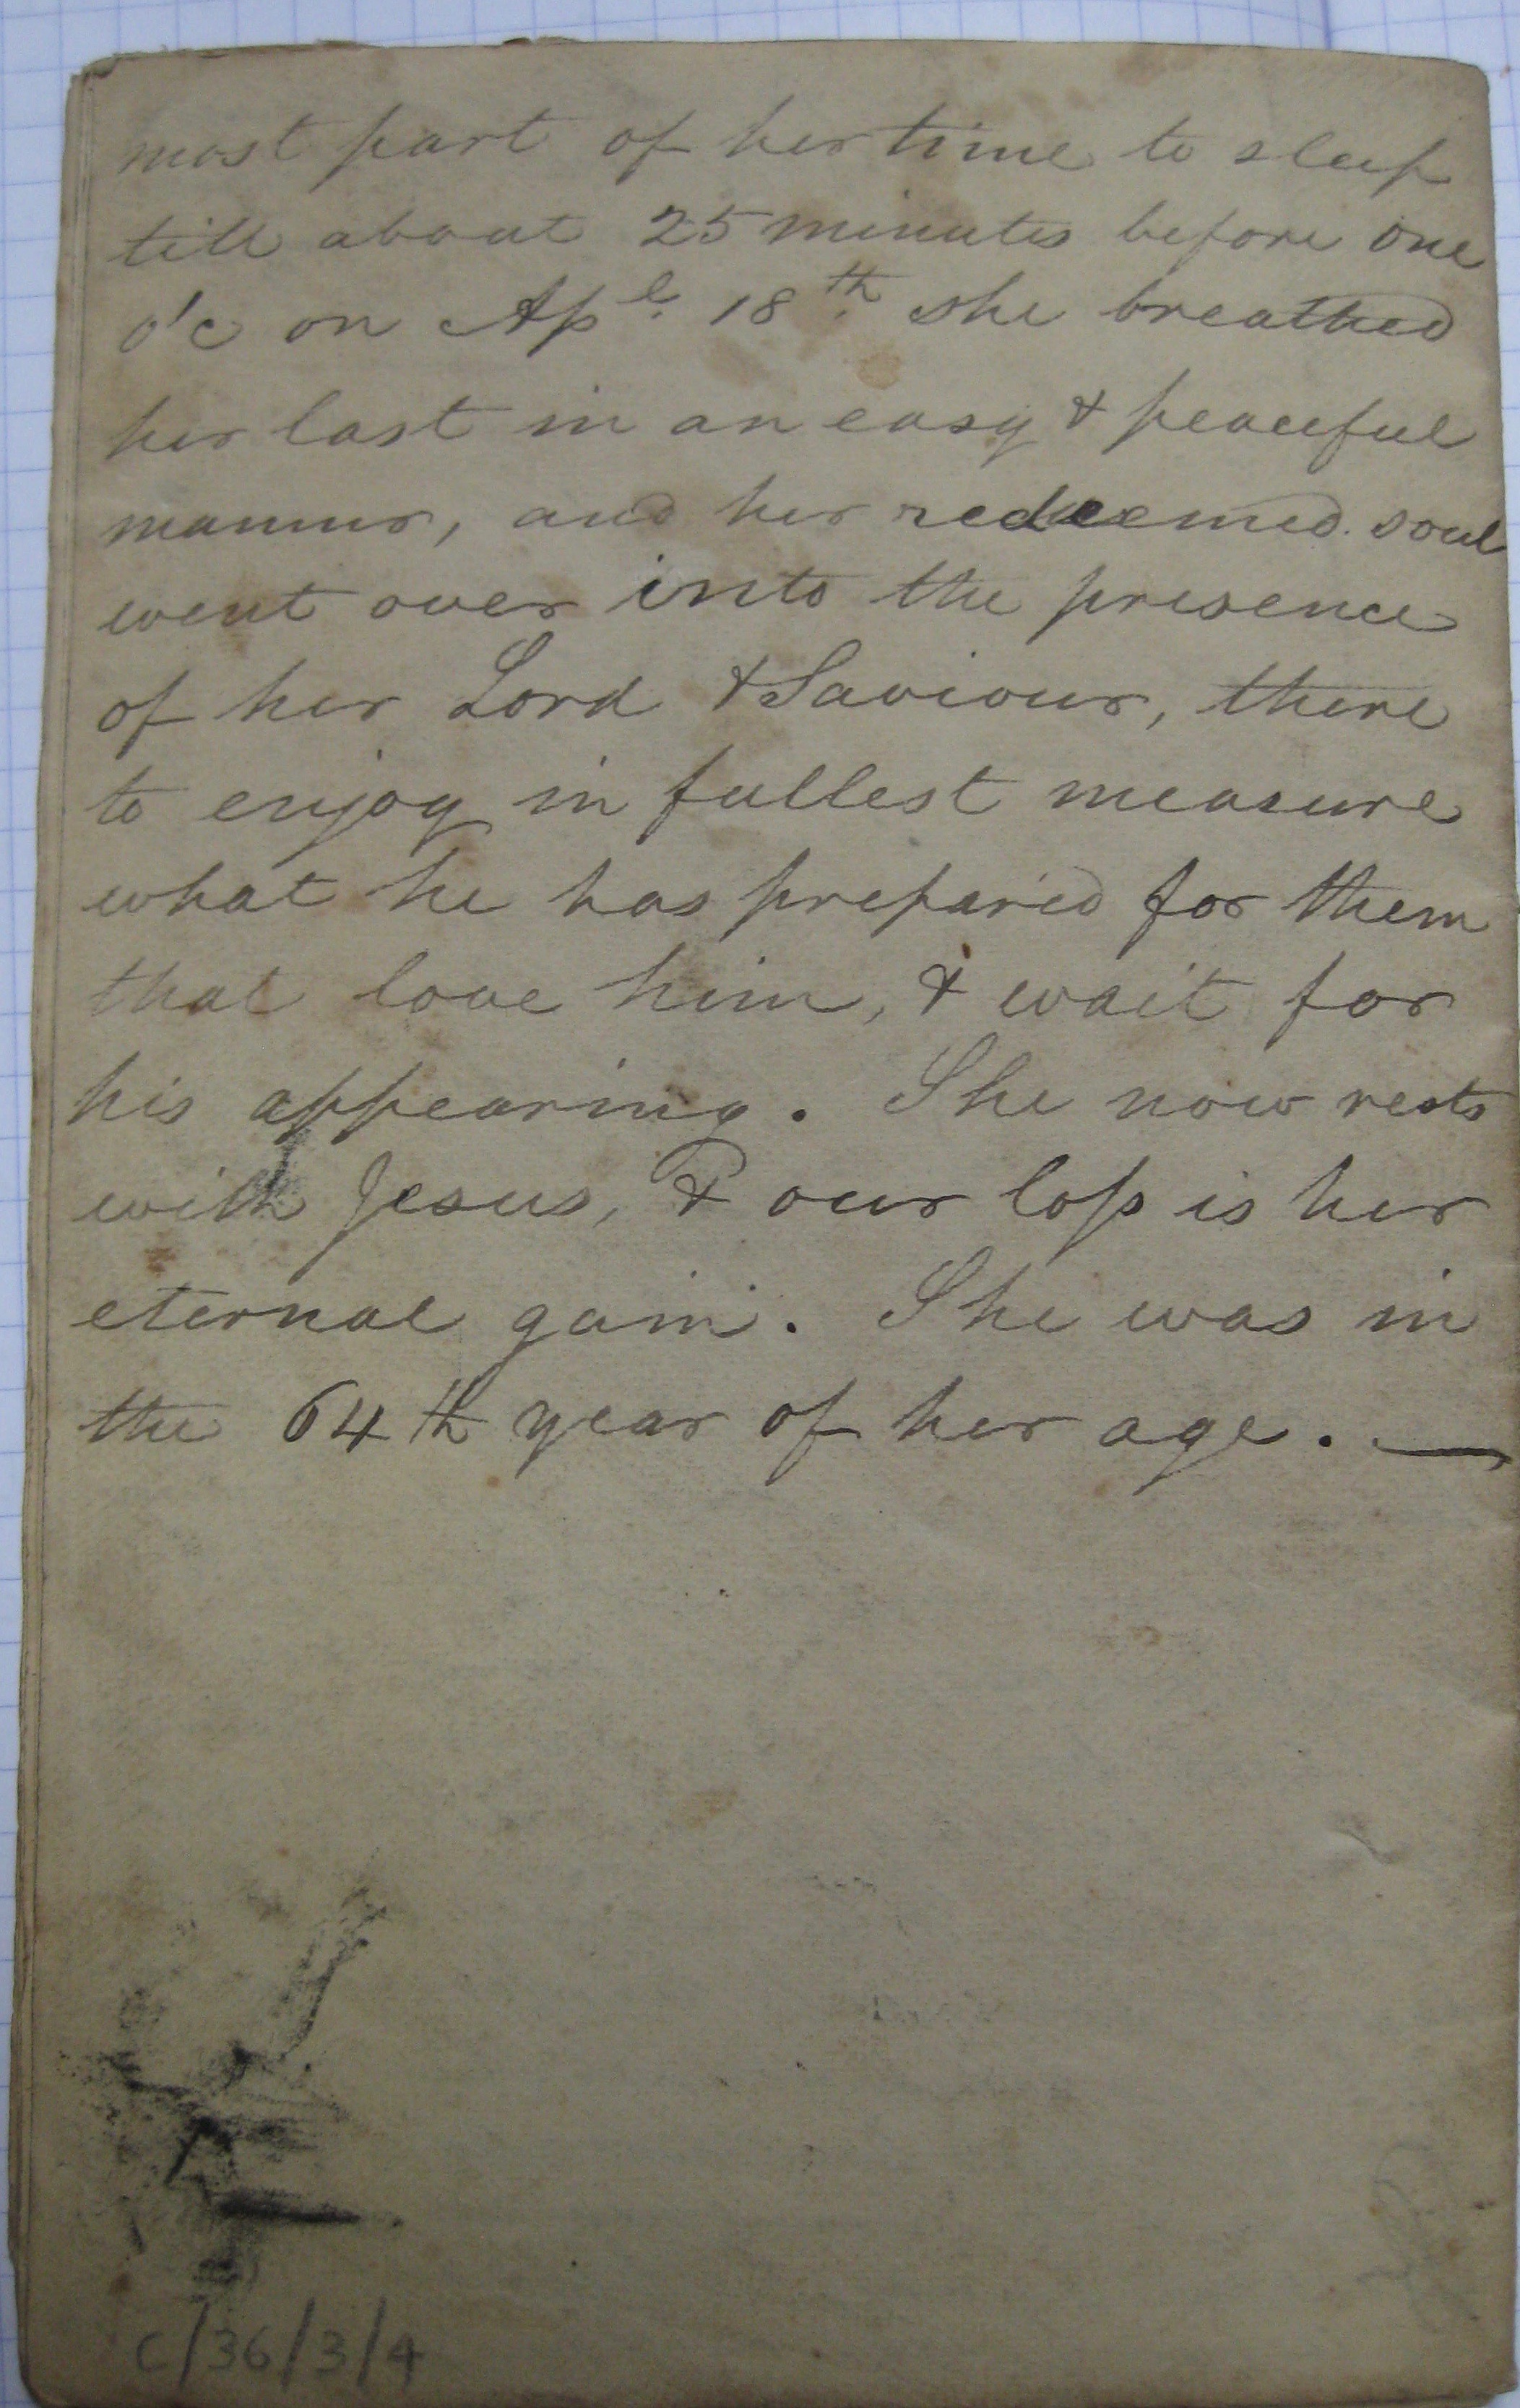 most part of her time to sleep
till about 25 minutes before one
o'c on Apl. 18th. she breathed
her last in an easy & peaceful
manner, and her redeemed soul
went over into the presence
of her Lord & Saviour, there
to enjoy in fullest measure
what he has prepared for them
that love him, & wait for
his appearing. She now rests
with Jesus, & our loss is her
eternal gain. She was in
the 64th year of her age. —
C/36/3/4